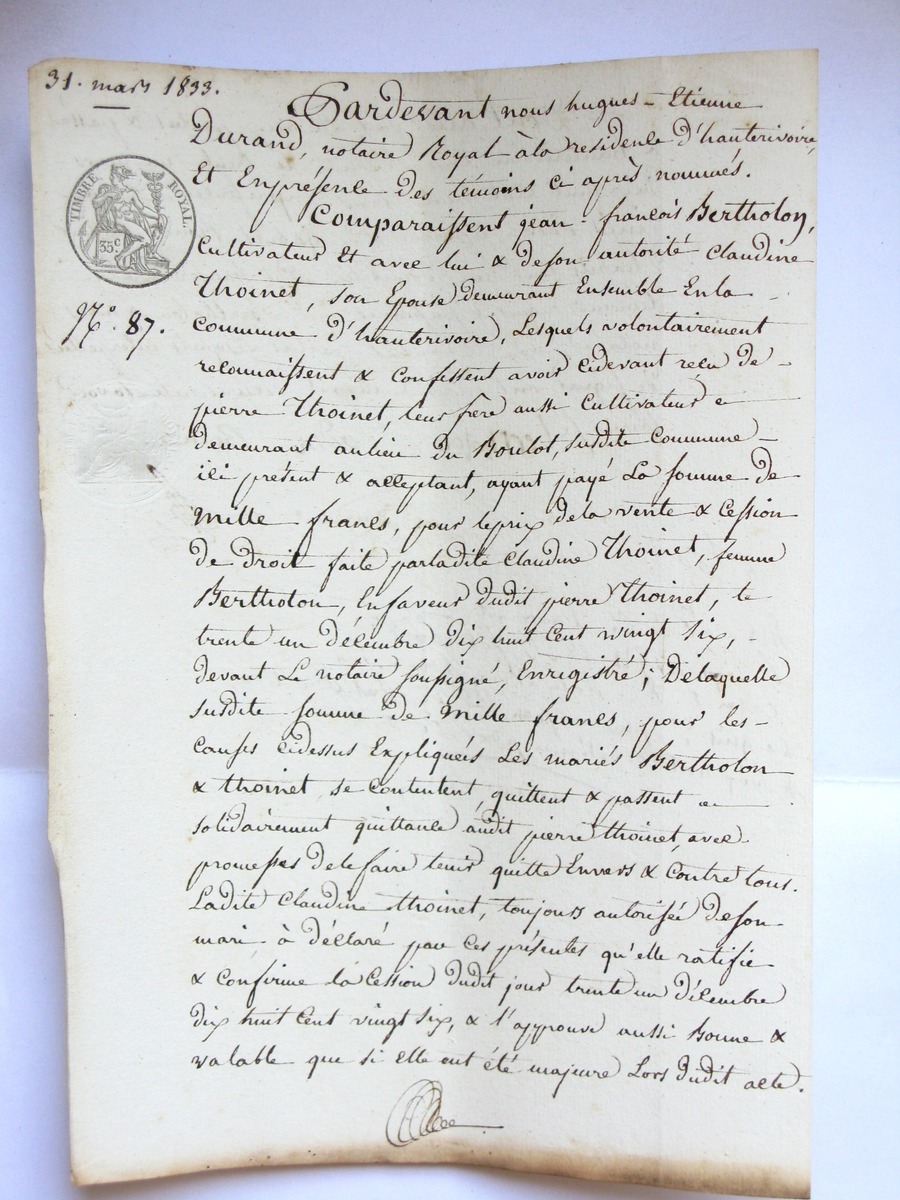 31. mars 1833.
Pardevant nous hugues - Etienne
Durand, notaire Royal à la residence d'hauterivoire,
Et En présence Des témoins ci après nommés.
TIMBRE ROYAL.
35c
Comparaissent jean - francois Bertholon,
Cultivateur Et avec lui & de son autorité Claudine
Thoinet, son Epouse demeurant Ensemble En la -
N.o 87.
commune d'hauterivoire, Lesquels volontairement
reconnaissent & confessent avoir cidevant recu de -
pierre Thoinet, leur frère aussi Cultivateur
demeurant au lieu du Boulot, susdite Commune -
ici présent & acceptant, ayant payé La somme de
mille francs, pour le prix de la vente & Cession
de droit faite par ladite Claudine Thoinet, femme
Bertholon, En faveur dudit pierre Thoinet, le
trente un décembre dix huit Cent vingt six, -
devant Le notaire soussigné, Enregistré; De laquelle
susdite somme de mille francs, pour les -
causes cidessus Expliquées Les mariés Bertholon
& thoinet se contentent, quittent & passent
solidairement quittance audit pierre thoinet, avec
promesses de le faire tenir quitte Envers & Contre tous.
Ladite Claudine thoinet, toujours autorisée de son
mari à déclaré par ces présentes qu'elle ratifie
& confirme la Cession dudit jour trente un décembre
dix huit Cent vingt six, & l'approuve aussi Bonne &
valable que si elle eut été majeure Lors dudit acte.